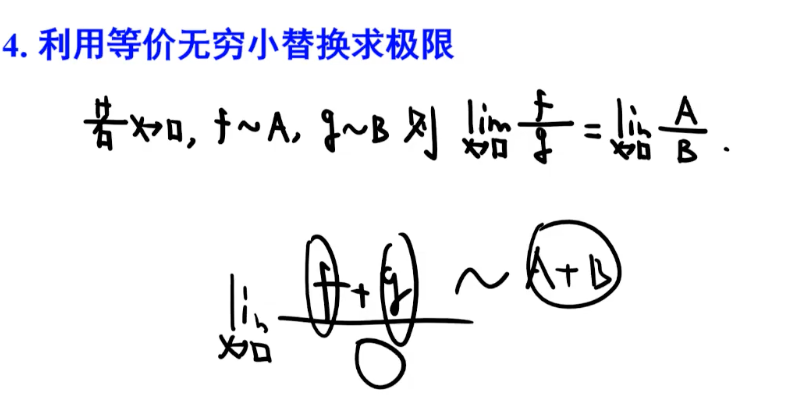 4. 利用等价无穷小替换求极限
若 x→□, f~A, g~B 则 lim x→□ f/g = lim x→□ A/B .
lim x→□ (f+g)/○ ~ A+B